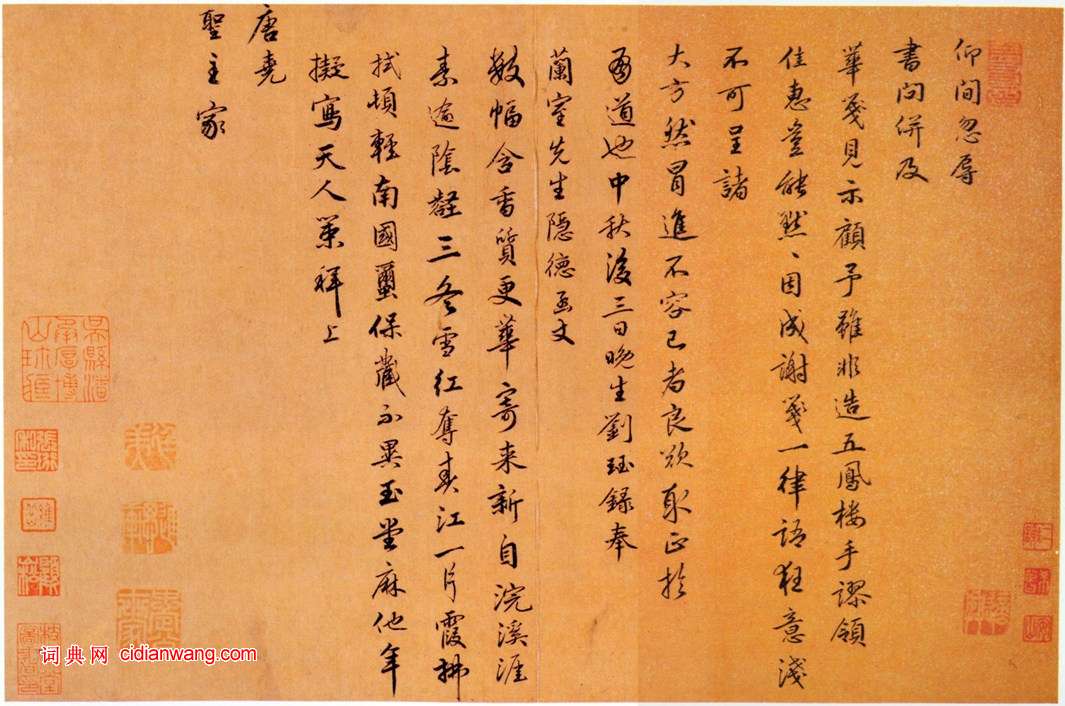 仰间忽辱
書问併及
華箋見示顧予雖非造五鳳楼手謬領
佳惠豈能默〻因成謝箋一律語狂意淺
不可呈諸
大方然冒進不容已者良欲取正於
有道也中秋後三日晚生劉珏録奉
蘭室先生隱德函丈
数幅含香質更華寄来新自浣溪涯
素逾陰壑三冬雪红奪春江一片霞拂
拭頓輕南國璽保藏不異玉堂麻他年
擬寫天人策拜上
唐堯
聖主家
吳縣潘
承厚博
山珍藏
词典网 cidianwang.com